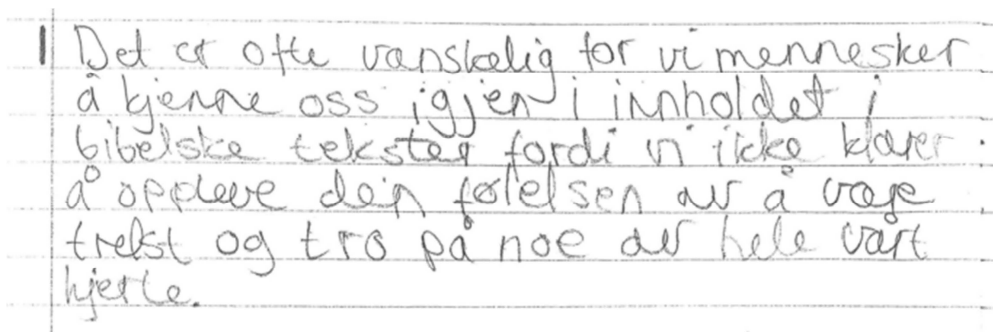 1 Det er ofte vanskelig for vi mennesker
å kjenne oss igjen i innholdet i
bibelske tekster fordi vi ikke klarer
å oppleve den følelsen av å være
frelst og tro på noe av hele vårt
hjerte.